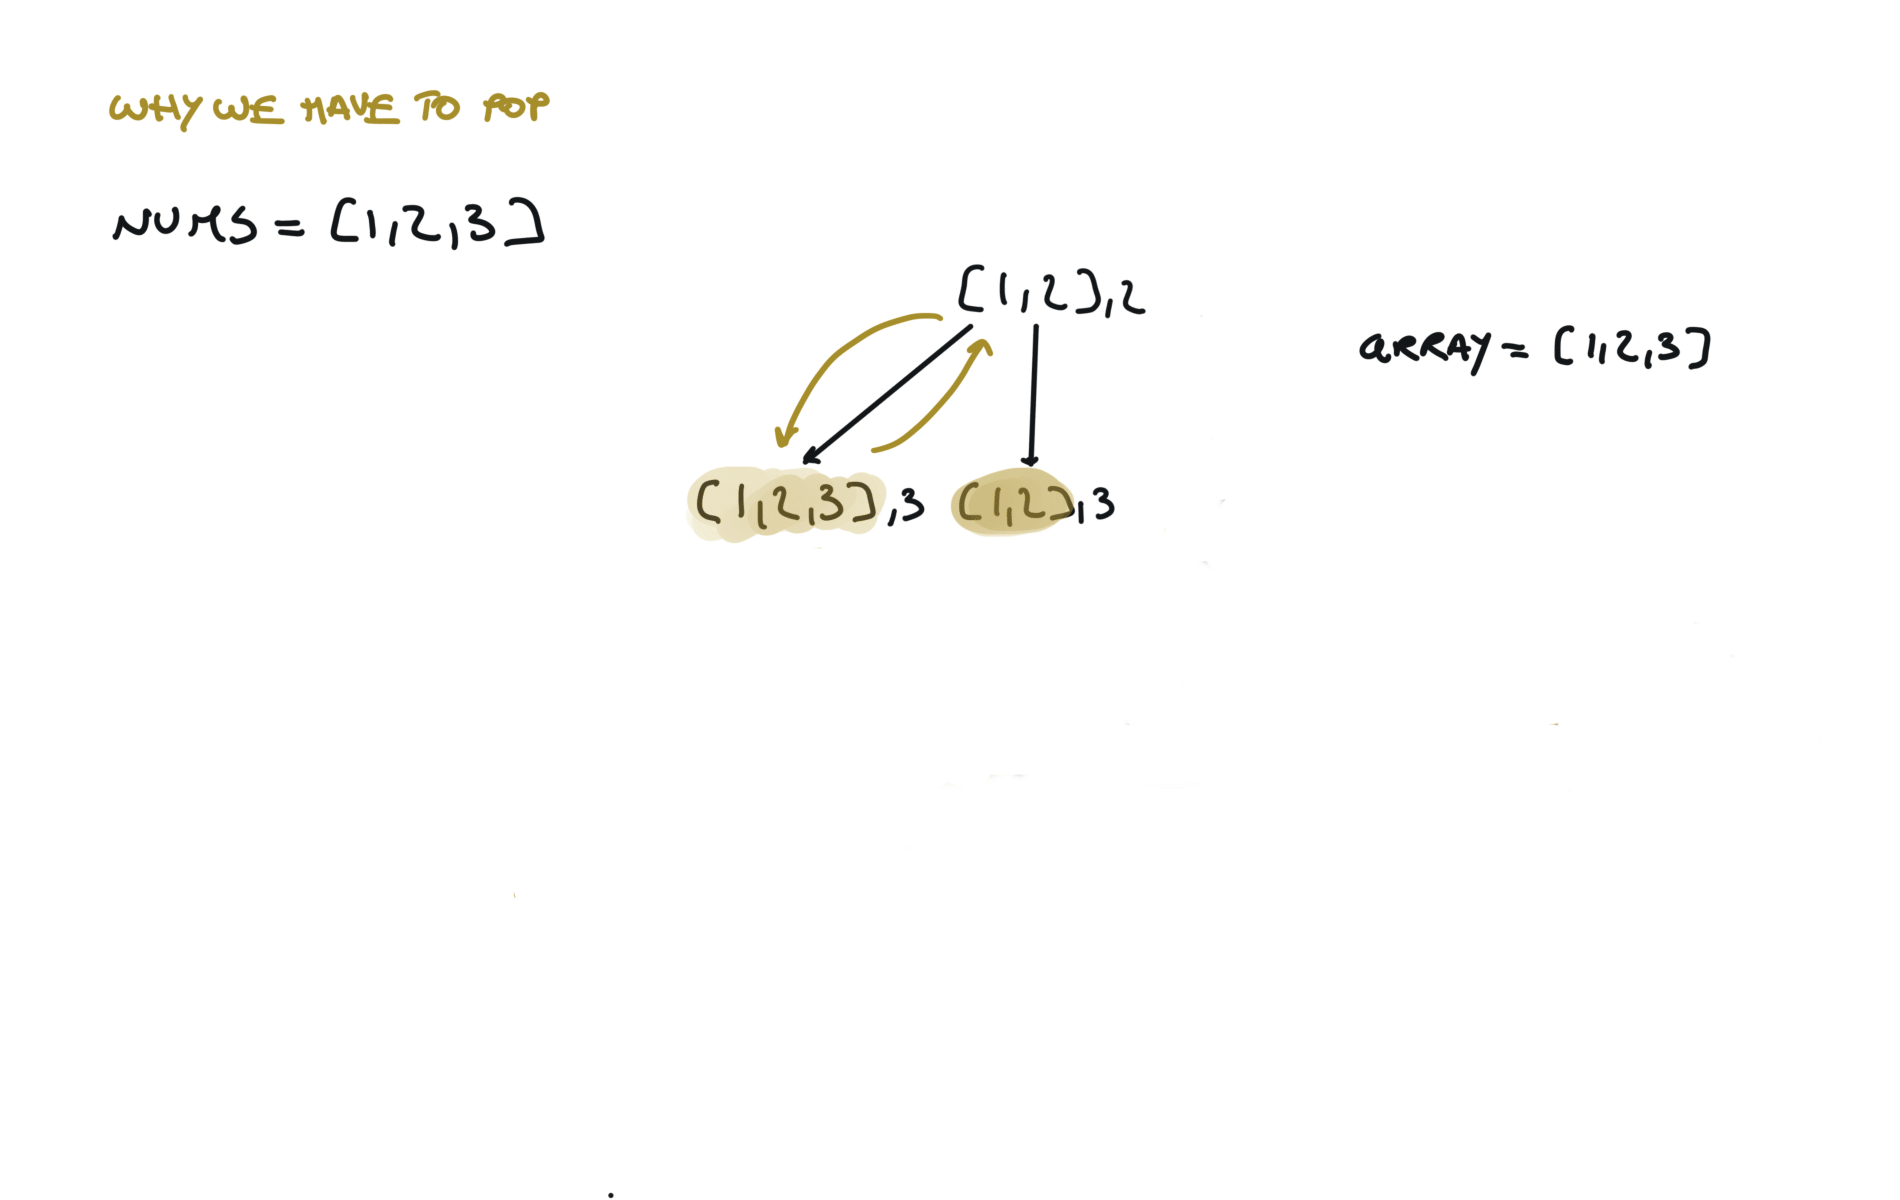 WHY WE HAVE TO POP
NUMS = [1,2,3]
[1,2],2
ARRAY = [1,2,3]
[1,2,3],3 [1,2],3